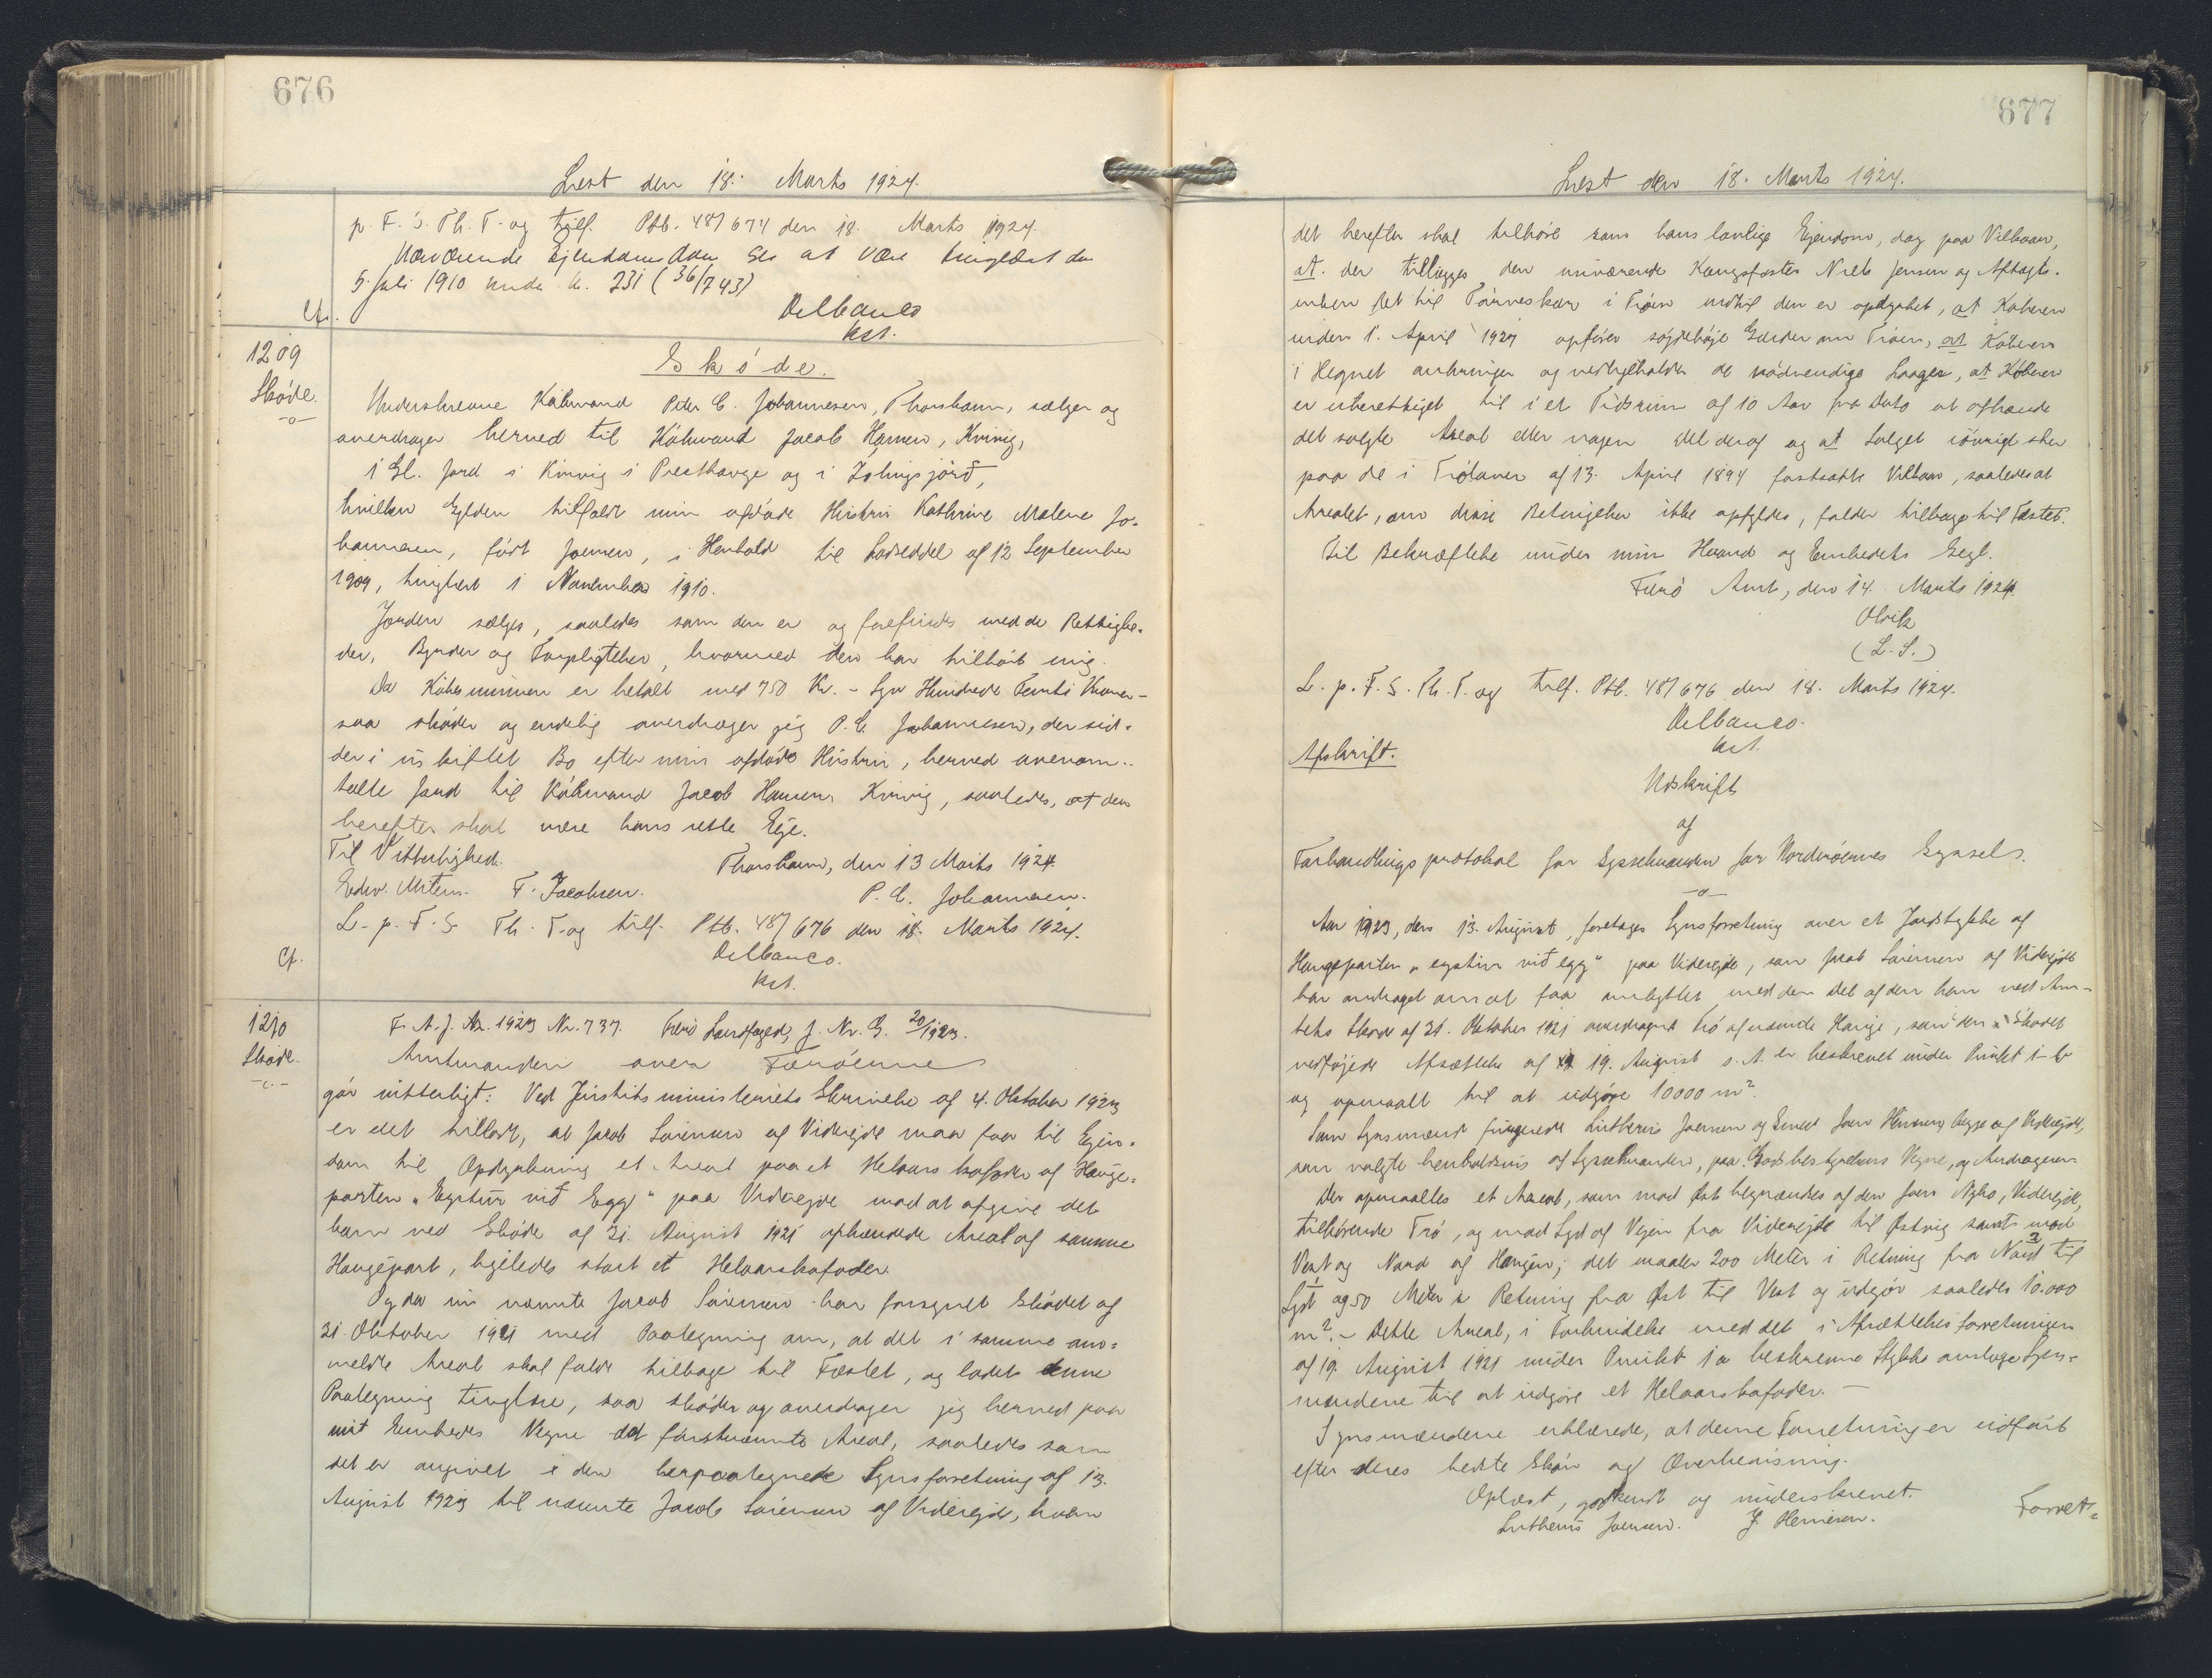 676
Læst den 18. Marts 1924.
p. F. S. Th. T. og tilf. Ptb. 48/674 den 18. Marts 1924.
Nærværende Ejendom ses at være tinglæst den
5. Juli 1910 under Nr. 231 (36/743)
Delbanco
kst.
Cf.
1209
Skøde.
Skøde.
Underskrevne Købmand Peter C. Johannesen, Thorshavn, sælger og
overdrager herved til Købmand Jacob Hansen, Kvivig,
1 Gl. Jord i Kvivig i Presthavge og i
hvilken Gylden tilfaldt min afdøde Hustru Kathrine Malene Jo-
hannesen, født Joensen, i Henhold til Lodseddel af 12 September
1909, tinglæst 1 November 1910.
Jorden sælges, saaledes som den er og forefindes med de Rettighe-
der, Byrder og Forpligtelser, hvormed den har tilhørt mig.
Da Købesummen er betalt med 750 Kr. - Syv Hundrede Femti Kroner -
saa skøder og endelig overdrager jeg P. C. Johannesen, der sid-
der i uskiftet Bo efter min afdøde Hustru, herved ovenom-
talte Jord til Købmand Jacob Hansen, Kvivig, saaledes, at den
herefter skal være hans rette Eje.
Til Vitterlighed. Thorshavn, den 13 Marts 1924
Edw. Mitens. F. Jacobsen. P. C. Johannesen.
L. p. F. S. Th. T. og tilf. Ptb. 48/676 den 18. Marts 1924.
Delbanco.
kst.
Cf.
1210
Skøde.
F. A. J. Nr. 1923 Nr. 737. Færø Landfoged, J. Nr. G. 20/1923.
Amtmanden over Færøerne
gør vitterligt: Ved Justitsministeriets Skrivelse af 4. Oktober 1923
er det tilladt, at Jacob Sørensen af Viderejde maa faa til Ejen-
dom til Opdyrkning et Areal paa et Helaars kofoder af Hauge-
parten "Eystur við Egg" paa Viderejde mod at afgive det
ham ved Skøde af 31. August 1921 afhændede Areal af samme
Haugepart, ligeledes stort et Helaarskofoder.
Og da nu nævnte Jacob Sørensen har forsynet Skødet af
31. Oktober 1921 med Paategning om, at det i samme om-
meldte Areal skal falde tilbage til Fæstet, og ladet denne
Paategning tinglæse, saa skøder og overdrager jeg herved paa
mit Embedes Vegne det førstnævnte Areal, saaledes som
det er angivet i den herpaategnede Synsforretning af 13.
August 1923 til nævnte Jacob Sørensen af Viderejde, hvem
677
Læst den 18. Marts 1924.
det herefter skal tilhøre som hans lovlige Ejendom, dog paa Vilkaar,
at der tillægges den nuværende Kongsfæster Niels Jensen og Aftægts-
enken Ret til Tørveskær i Trøen indtil den er opdyrket, at Køberen
inden 1. April 1927 opfører søjdehøje Gærder om Trøen, at Køberen
i Hegnet anbringer og vedligeholder de nødvendige Laager, at Køberen
er uberettiget til i et Tidsrum af 10 Aar fra Dato at afhænde
det solgte Areal eller nogen Del deraf og at Salget iøvrigt sker
paa de i Trøloven af 13. April 1894 fastsatte Vilkaar, saaledes at
Arealet, om disse Betingelser ikke opfyldes, falder tilbage til Fæstet.
Til Bekræftelse under min Haand og Embedets Segl.
Færø Amt, den 14. Marts 1924.
Olrik
(L. S.)
L. p. F. S. Th. T. og tilf. Ptb. 48/676 den 18. Marts 1924.
Delbanco.
kst.
Afskrift.
Udskrift
af
Forhandlingsprotokol for Sysselmanden for Norderøernes Syssel.
Aar 1923, den 13. August, foretoges Synsforretning over et Jordstykke af
Haugeparten "eystur við egg" paa Viderejde, som Jacob Sørensen af Viderejde
har andraget om at faa ombyttet med den Del af den ham ved Am-
tets Skøde af 31. Oktober 1921 overdragne Trø af nævnte Hauge, som den i Skødet
vedføjede Afsættelse af 19. August s. A. er beskrevet under Punkt 1 b
og opmaalt til at udgøre 10000 m².
Som Synsmænd fungerede Lutherus Joensen og Joen af Viderejde,
som valgte henholdsvis af Sysselmanden, paa Godsbestyrelsens Vegne, og Andrageren.
Der opmaaltes et Areal, som mod Øst begrændses af den Joen Nybo, Viderejde,
tilhørende Trø, og mod Syd af Vejen fra Viderejde til Østvig samt mod
Vest og Nord af Haugen; det maaler 200 Meter i Retning fra Nord til
Syd og 50 Meter i Retning fra Øst til Vest og udgør saaledes 10.000
m². - Dette Areal, i Forbindelse med det i Afsættelsesforretningen
af 19. August 1921 under Punkt 1 a beskrevne Stykke antoge Syns-
mændene til at udgøre et Helaarskofoder. -
Synsmændene erklærede, at denne Forretning er udført
efter deres bedste Skøn og Overbevisning.
Oplæst, godkendt og underskrevet.
Lutherus Joensen. J. Henriksen.
Forret-